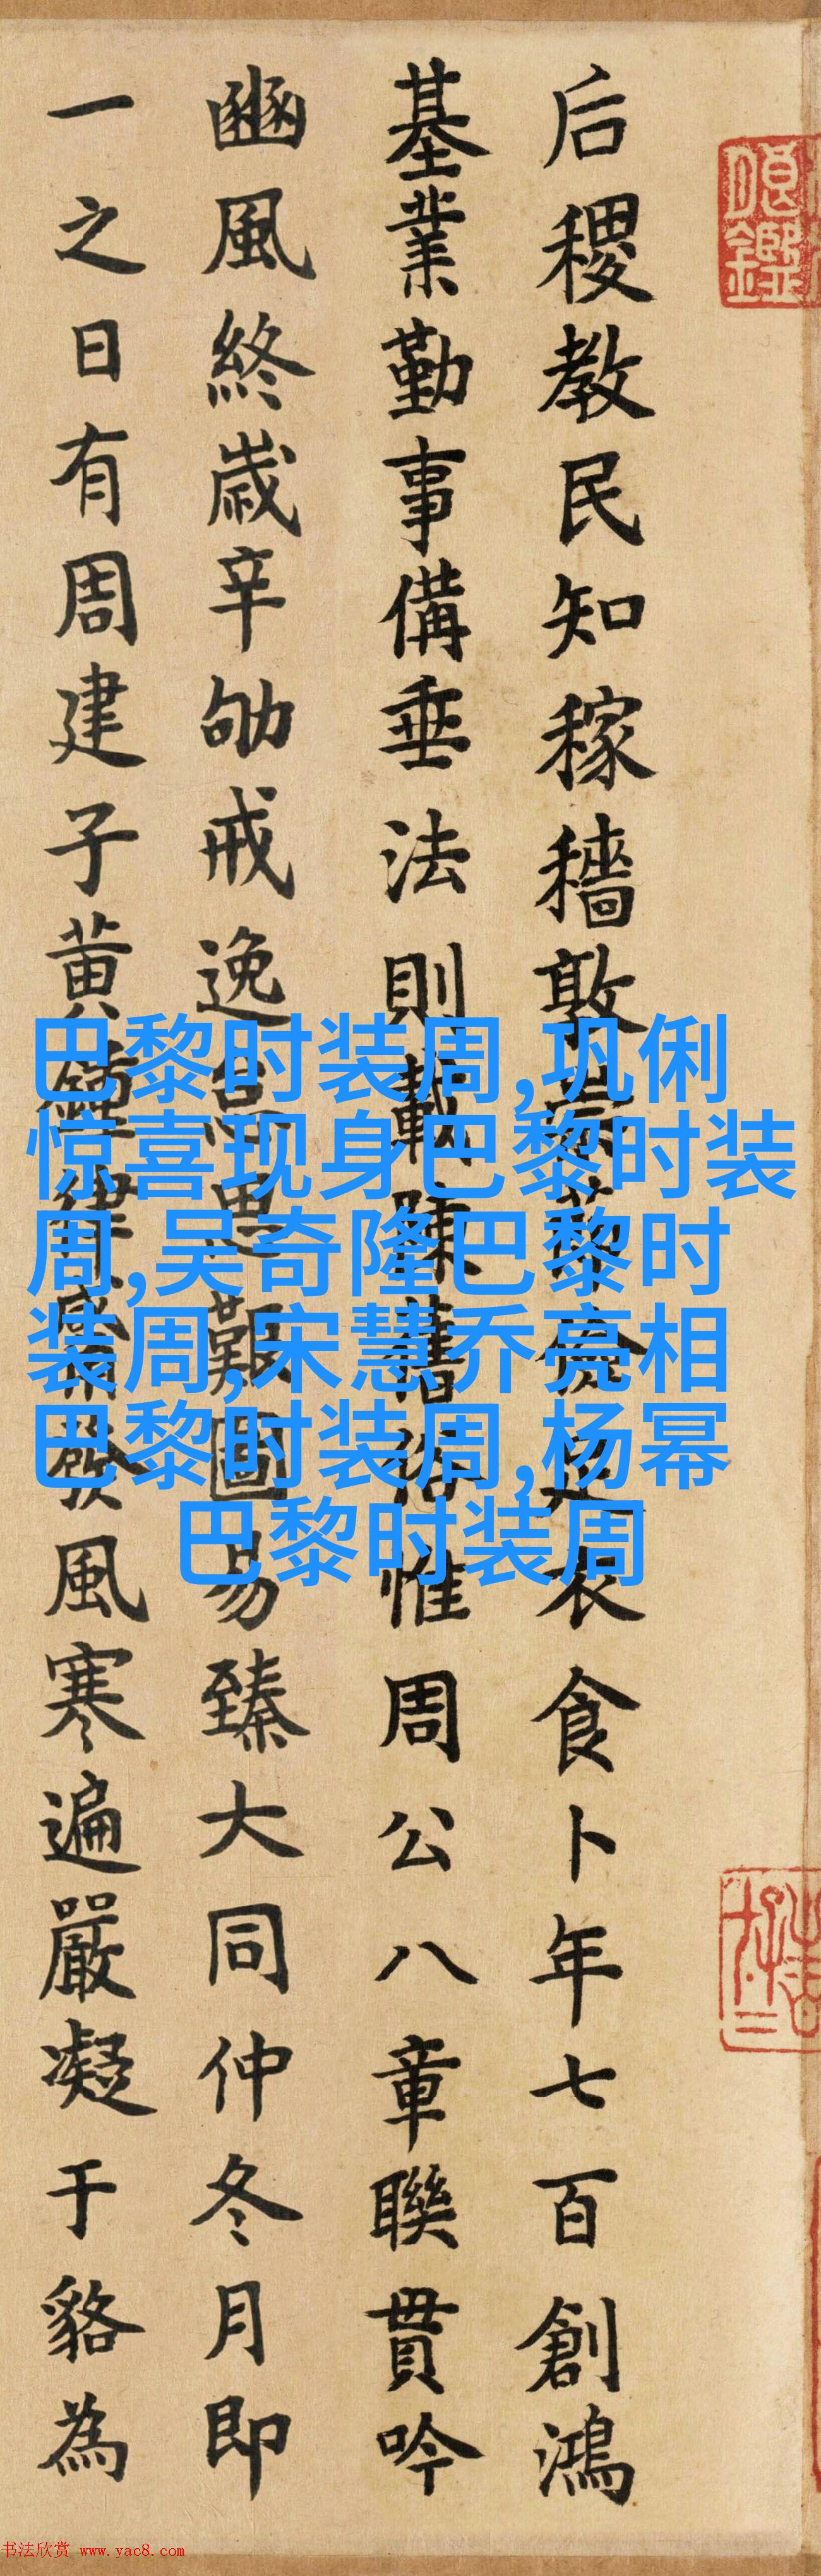 后稷教民知稼穡敦衣食卜年七百創鴻
基業勤事備垂法則載陳舊惟周公八章聯貫吟
豳風終歲辛劬戒逸思艱圖易臻大同仲冬月即
一之日有周建子黃鐘律發風寒遍嚴凝于貉為
巴黎时装周,巩俐
惊喜现身巴黎时装
周,吴奇隆巴黎时
装周,宋慧乔亮相
巴黎时装周,杨幂
巴黎时装周
书法欣赏 www.yac8.com